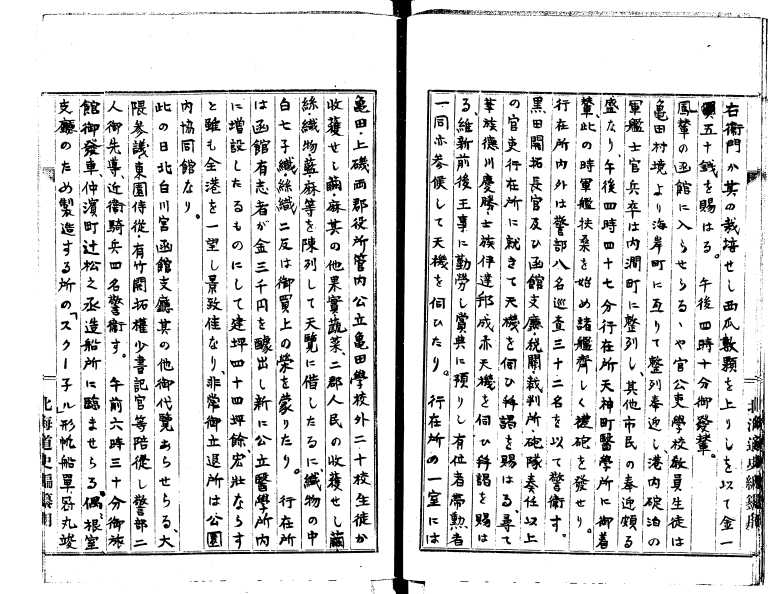 右衛門か其の栽培せし西瓜数顆を上りしを以て金一
円五十銭を賜はる。午後四時十分御発輦。
鳳輦の函館に入らせらるゝや官公吏学校教員生徒は
亀田村境より海岸町に亙りて整列奉迎し港内碇泊の
軍艦士官兵卒は内澗町に整列し、其他市民の奉迎頗る
盛なり、午後四時四十七分行在所天神町醫学所に御着
輦、此の時軍艦扶桑を始め諸艦齊しく禮砲を発せり。
行在所内外は警部八名巡査三十二名を以て警衛す。
黒田開拓長官及ひ函館支廳、税関、裁判所砲隊奏任以上
の官吏行在所に就きて天機を伺ひ拝謁を賜はる、尋て
華族徳川慶勝、士族伊達邦成亦天機を伺ひ拝謁を賜は
る、維新前後王事に勤労し賞典に預りし有位者帯勲者
一同亦参候して天機を伺ひたり。行在所の一室には
亀田・上磯両郡役所管内公立亀田学校外二十校生徒か
収穫せし繭・麻其の他果實蔬菜、二郡人民の收穫せし繭・
絲・織物・藍・麻等を陳列して天覧に備したるに織物の中
白七子織絲織二反は御買上の栄を蒙りたり。行在所
は函館有志者が金三千円を醵出し新に公立醫學所内
に増設したるものにして建坪四十四坪餘、宏壮ならす
と雖も全港を一望し景致佳なり、非常御立退所は公園
内協同館なり。
此の日北白川宮函館支廳其の他御代覧あらせらる、大
隈参議、東園侍従・有竹開拓權少書記官等陪従し警部二
人御先導、近衛騎兵四名警衛す。午前六時三十分御旅
館御發車、仲濱町辻松之丞造船所に臨ませらる。偶、根室
支廳のため製造する所の「スクー子ル」形帆船單吞丸竣
北海道史編纂用
北海道史編纂用